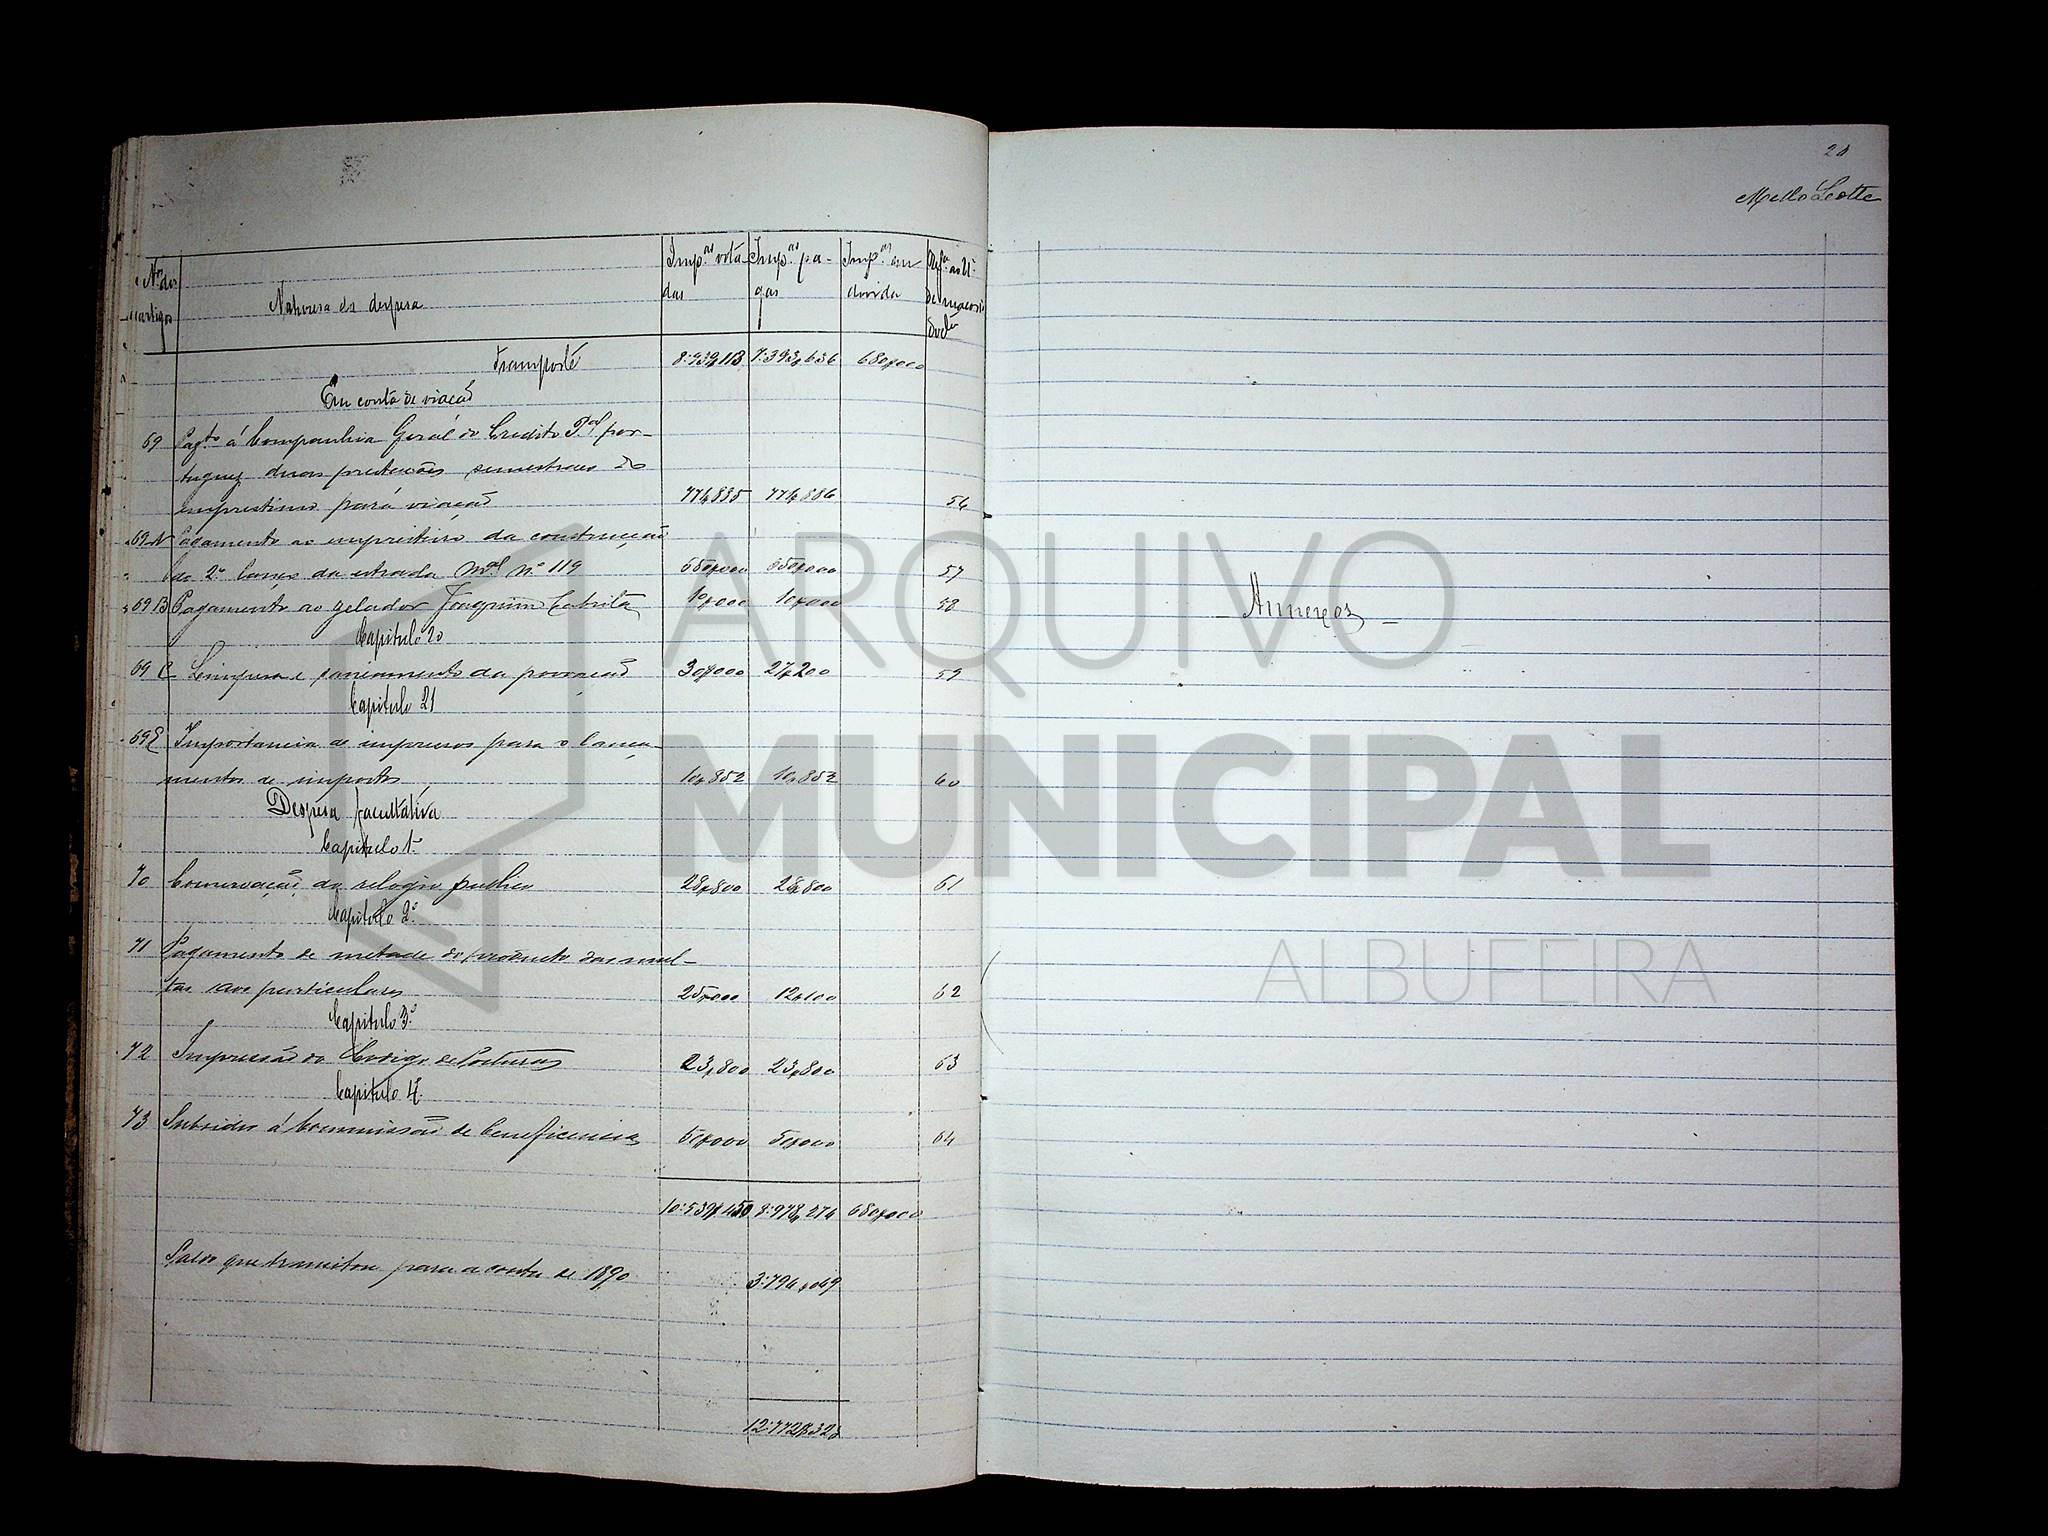 Nos. dos artigos
Natureza da despesa
Imp.as votadas
Imp.as pagas
Imp.as em divida
Transporte 7:393,636 680,000
Em conta de viação
69 Pag.to á Companhia Geral do Credito P.al por-
tuguez duas prestações semestraes do
emprestimo para viação 774,885 774,886 56
69 A Pagamento ao empreiteiro da construcção
do 2.º lanço da estrada M.al N.º 119 650,000 650,000 57
69 B Pagamento ao zelador Joaquim Cabrita 10,000 10,000 58
Capitulo 20
69 C Limpesa e saneamento da povoação 30,000 27,200 59
Capitulo 21
69 E Importancia de impressos para o lança-
mento de impostos 10,852 10,852 60
Despesa facultativa
Capitulo 1.º
70 Conservação do relogio publico 28,800 28,800 61
Capitulo 2.º
71 Pagamento de metade do producto das mul-
tas aos particulares 25,000 12,100 62
Capitulo 3.º
72 Impressão do Codigo de Posturas 23,800 23,800 63
Capitulo 4.º
73 Subsidio á Commissão de beneficencia 50,000 50,000 64
10:539,450 8:978,274 680,000
Saldo que transitou para a conta de 1890 3:794,049
12:772,323
28
Mello Leotte
Annexos
ARQUIVO
MUNICIPAL
ALBUFEIRA